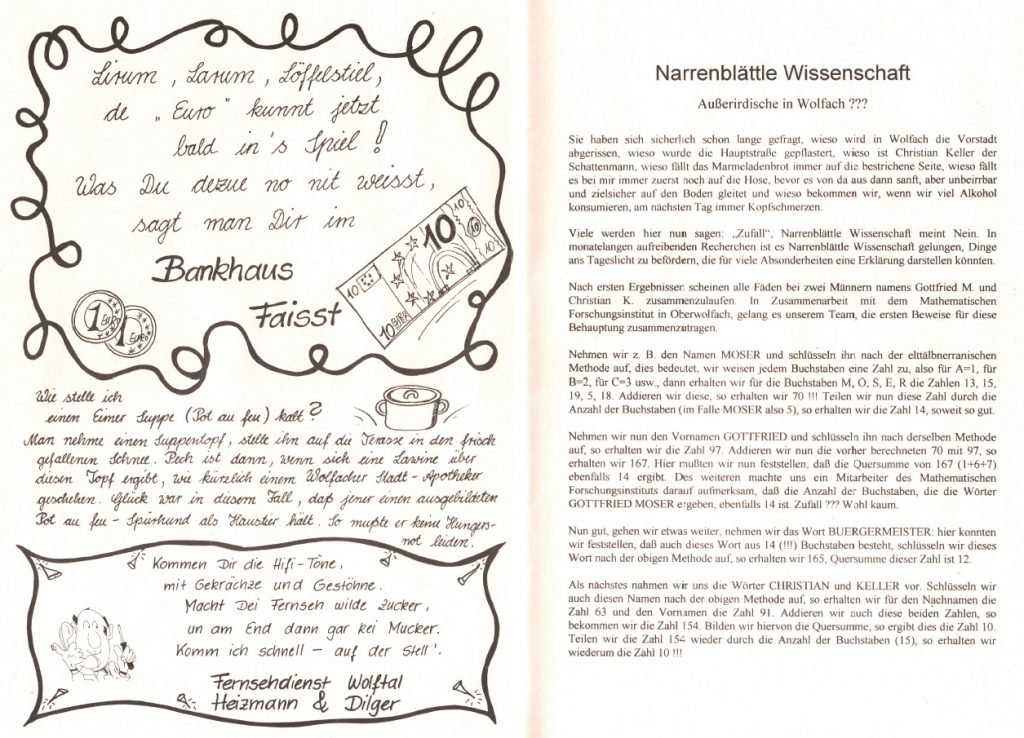 Lirum, Larum, Löffelstiel,
de „Euro" kunnt jetzt
bald in's Spiel!
Was Du dezue no nit weisst,
sagt man Dir im
Bankhaus
Faisst
10
10
10
10
10
10 EURO
1 EURO
1 EURO
Wie stelle ich
einen Eimer Suppe (Pot au feu) kalt?
Man nehme einen Suppentopf, stelle ihn auf die Terasse in den frisch
gefallenen Schnee. Pech ist dann, wenn sich eine Lawine über
diesen Topf ergibt, wie kürzlich einem Wolfacher Stadt-Apotheker
geschehen. Glück war in diesem Fall, daß jener einen ausgebildeten
Pot au feu - Spürhund als Haustier hält. So mußte er keine Hungers-
not leiden.
Kommen Dir die Hifi-Töne,
mit Gekrächze und Gestöhne.
Macht Dei Fernseh wilde Zucker,
un am End dann gar kei Mucker.
Komm ich schnell - auf der Stell'.
Fernsehdienst Wolftal
Heizmann & Dilger
Narrenblättle Wissenschaft
Außerirdische in Wolfach ???
Sie haben sich sicherlich schon lange gefragt, wieso wird in Wolfach die Vorstadt
abgerissen, wieso wurde die Hauptstraße gepflastert, wieso ist Christian Keller der
Schattenmann, wieso fällt das Marmeladenbrot immer auf die bestrichene Seite, wieso fällt
es bei mir immer zuerst noch auf die Hose, bevor es von da aus dann sanft, aber unbeirrbar
und zielsicher auf den Boden gleitet und wieso bekommen wir, wenn wir viel Alkohol
konsumieren, am nächsten Tag immer Kopfschmerzen.
Viele werden hier nun sagen: „Zufall", Narrenblättle Wissenschaft meint Nein. In
monatelangen aufreibenden Recherchen ist es Narrenblättle Wissenschaft gelungen, Dinge
ans Tageslicht zu befördern, die für viele Absonderheiten eine Erklärung darstellen könnten.
Nach ersten Ergebnissen scheinen alle Fäden bei zwei Männern namens Gottfried M. und
Christian K. zusammenzulaufen. In Zusammenarbeit mit dem Mathematischen
Forschungsinstitut in Oberwolfach, gelang es unserem Team, die ersten Beweise für diese
Behauptung zusammenzutragen.
Nehmen wir z. B. den Namen MOSER und schlüsseln ihn nach der elttälbnerranischen
Methode auf, dies bedeutet, wir weisen jedem Buchstaben eine Zahl zu, also für A=1, für
B=2, für C=3 usw., dann erhalten wir für die Buchstaben M, O, S, E, R die Zahlen 13, 15,
19, 5, 18. Addieren wir diese, so erhalten wir 70 !!! Teilen wir nun diese Zahl durch die
Anzahl der Buchstaben (im Falle MOSER also 5), so erhalten wir die Zahl 14, soweit so gut.
Nehmen wir nun den Vornamen GOTTFRIED und schlüsseln ihn nach derselben Methode
auf, so erhalten wir die Zahl 97. Addieren wir nun die vorher berechneten 70 mit 97, so
erhalten wir 167. Hier mußten wir nun feststellen, daß die Quersumme von 167 (1+6+7)
ebenfalls 14 ergibt. Des weiteren machte uns ein Mitarbeiter des Mathematischen
Forschungsinstituts darauf aufmerksam, daß die Anzahl der Buchstaben, die die Wörter
GOTTFRIED MOSER ergeben, ebenfalls 14 ist. Zufall ??? Wohl kaum.
Nun gut, gehen wir etwas weiter, nehmen wir das Wort BUERGERMEISTER: hier konnten
wir feststellen, daß auch dieses Wort aus 14 (!!!) Buchstaben besteht, schlüsseln wir dieses
Wort nach der obigen Methode auf, so erhalten wir 165, Quersumme dieser Zahl ist 12.
Als nächstes nahmen wir uns die Wörter CHRISTIAN und KELLER vor. Schlüsseln wir
auch diesen Namen nach der obigen Methode auf, so erhalten wir für den Nachnamen die
Zahl 63 und den Vornamen die Zahl 91. Addieren wir auch diese beiden Zahlen, so
bekommen wir die Zahl 154. Bilden wir hiervon die Quersumme, so ergibt dies die Zahl 10.
Teilen wir die Zahl 154 wieder durch die Anzahl der Buchstaben (15), so erhalten wir
wiederum die Zahl 10 !!!